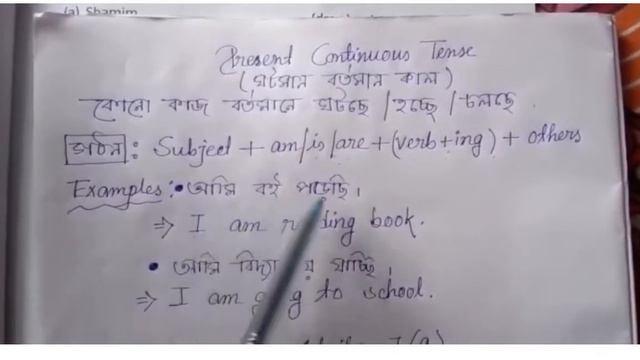 (a) Shamim
Present Continuous Tense
(ঘটমান বর্তমান কাল)
কোনো কাজ বর্তমানে ঘটছে / হচ্ছে / চলছে.
গঠন : Subject + am/is/are + (verb + ing) + others
Examples : • আমি বই পড়েছি।
⇒ I am book.
• আমি যাচ্ছি।
⇒ I am to school.